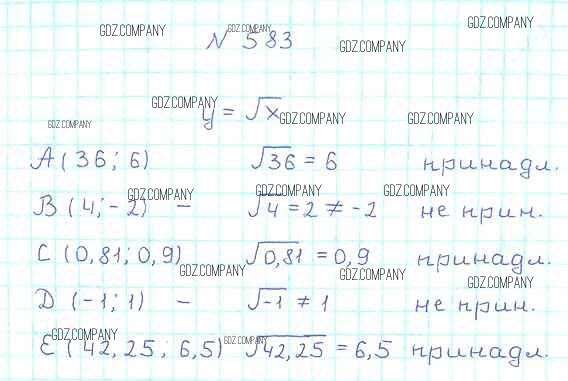 GDZ.COMPANY GDZ.COMPANY
№ 583 GDZ.COMPANY GDZ.COMPANY
GDZ.COMPANY GDZ.COMPANY GDZ.COMPANY GDZ.COMPANY
y = √x
A (36; 6) √36 = 6 принадл.
GDZ.COMPANY GDZ.COMPANY GDZ.COMPANY
B (4; -2) – √4 = 2 ≠ -2 не прин.
C (0,81; 0,9) √0,81 = 0,9 принадл.
GDZ.COMPANY GDZ.COMPANY GDZ.COMPANY
D (-1; 1) – √-1 ≠ 1 не прин.
GDZ.COMPANY GDZ.COMPANY
E (42,25; 6,5) √42,25 = 6,5 принадл.